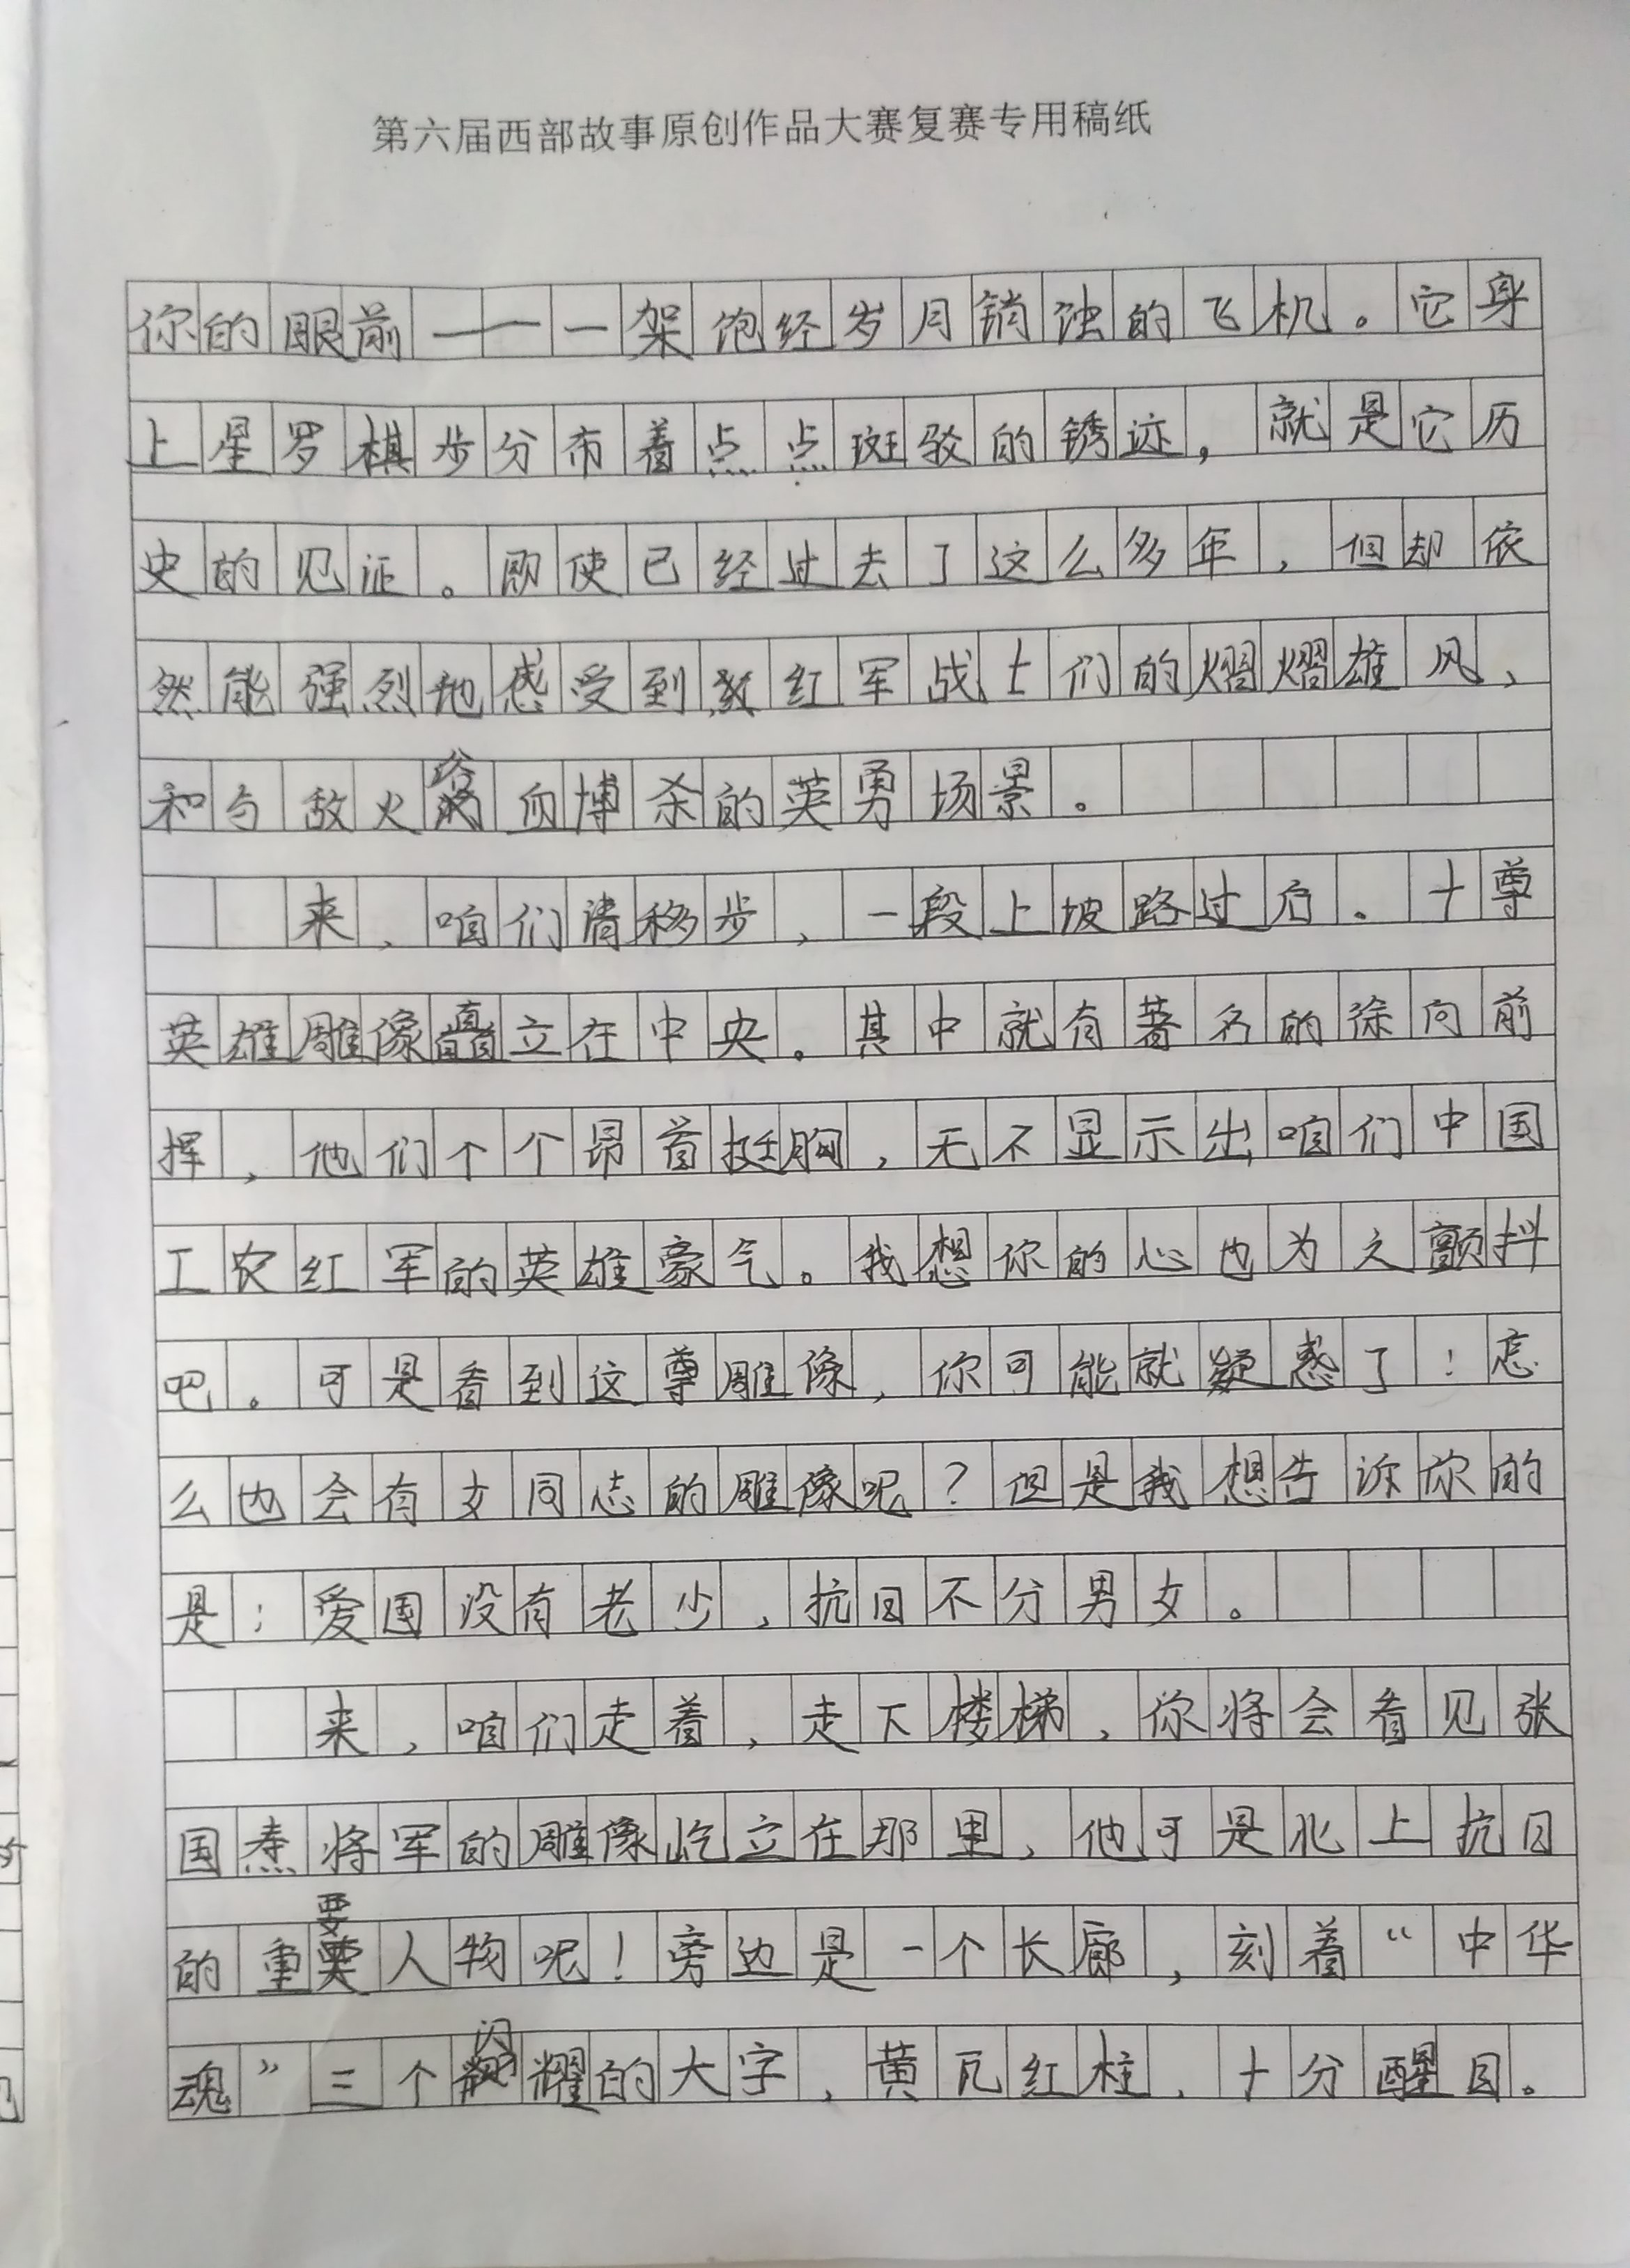 第六届西部故事原创作品大赛复赛专用稿纸
你的眼前——一架饱经岁月销蚀的飞机。它身
上星罗棋步分布着点点斑驳的锈迹，就是它历
史的见证。即使已经过去了这么多年，但却依
然能强烈地感受到红军战士们的熠熠雄风、
和与敌火浴血搏杀的英勇场景。
来，咱们请移步，一段上坡路过后。十尊
英雄雕像直立在中央。其中就有著名的徐向前
挥，他们个个昂首挺胸，无不显示出咱们中国
工农红军的英雄豪气。我想你的心也为之颤抖
吧。可是看到这尊雕像，你可能就疑惑了！怎
么也会有女同志的雕像呢？但是我想告诉你的
是：爱国没有老少，抗日不分男女。
来，咱们走着，走下楼梯，你将会看见张
国焘将军的雕像屹立在那里，他可是北上抗日
的重要人物呢！旁边是一个长廊，刻着“中华
魂”三个闪耀的大字，黄瓦红柱，十分醒目。